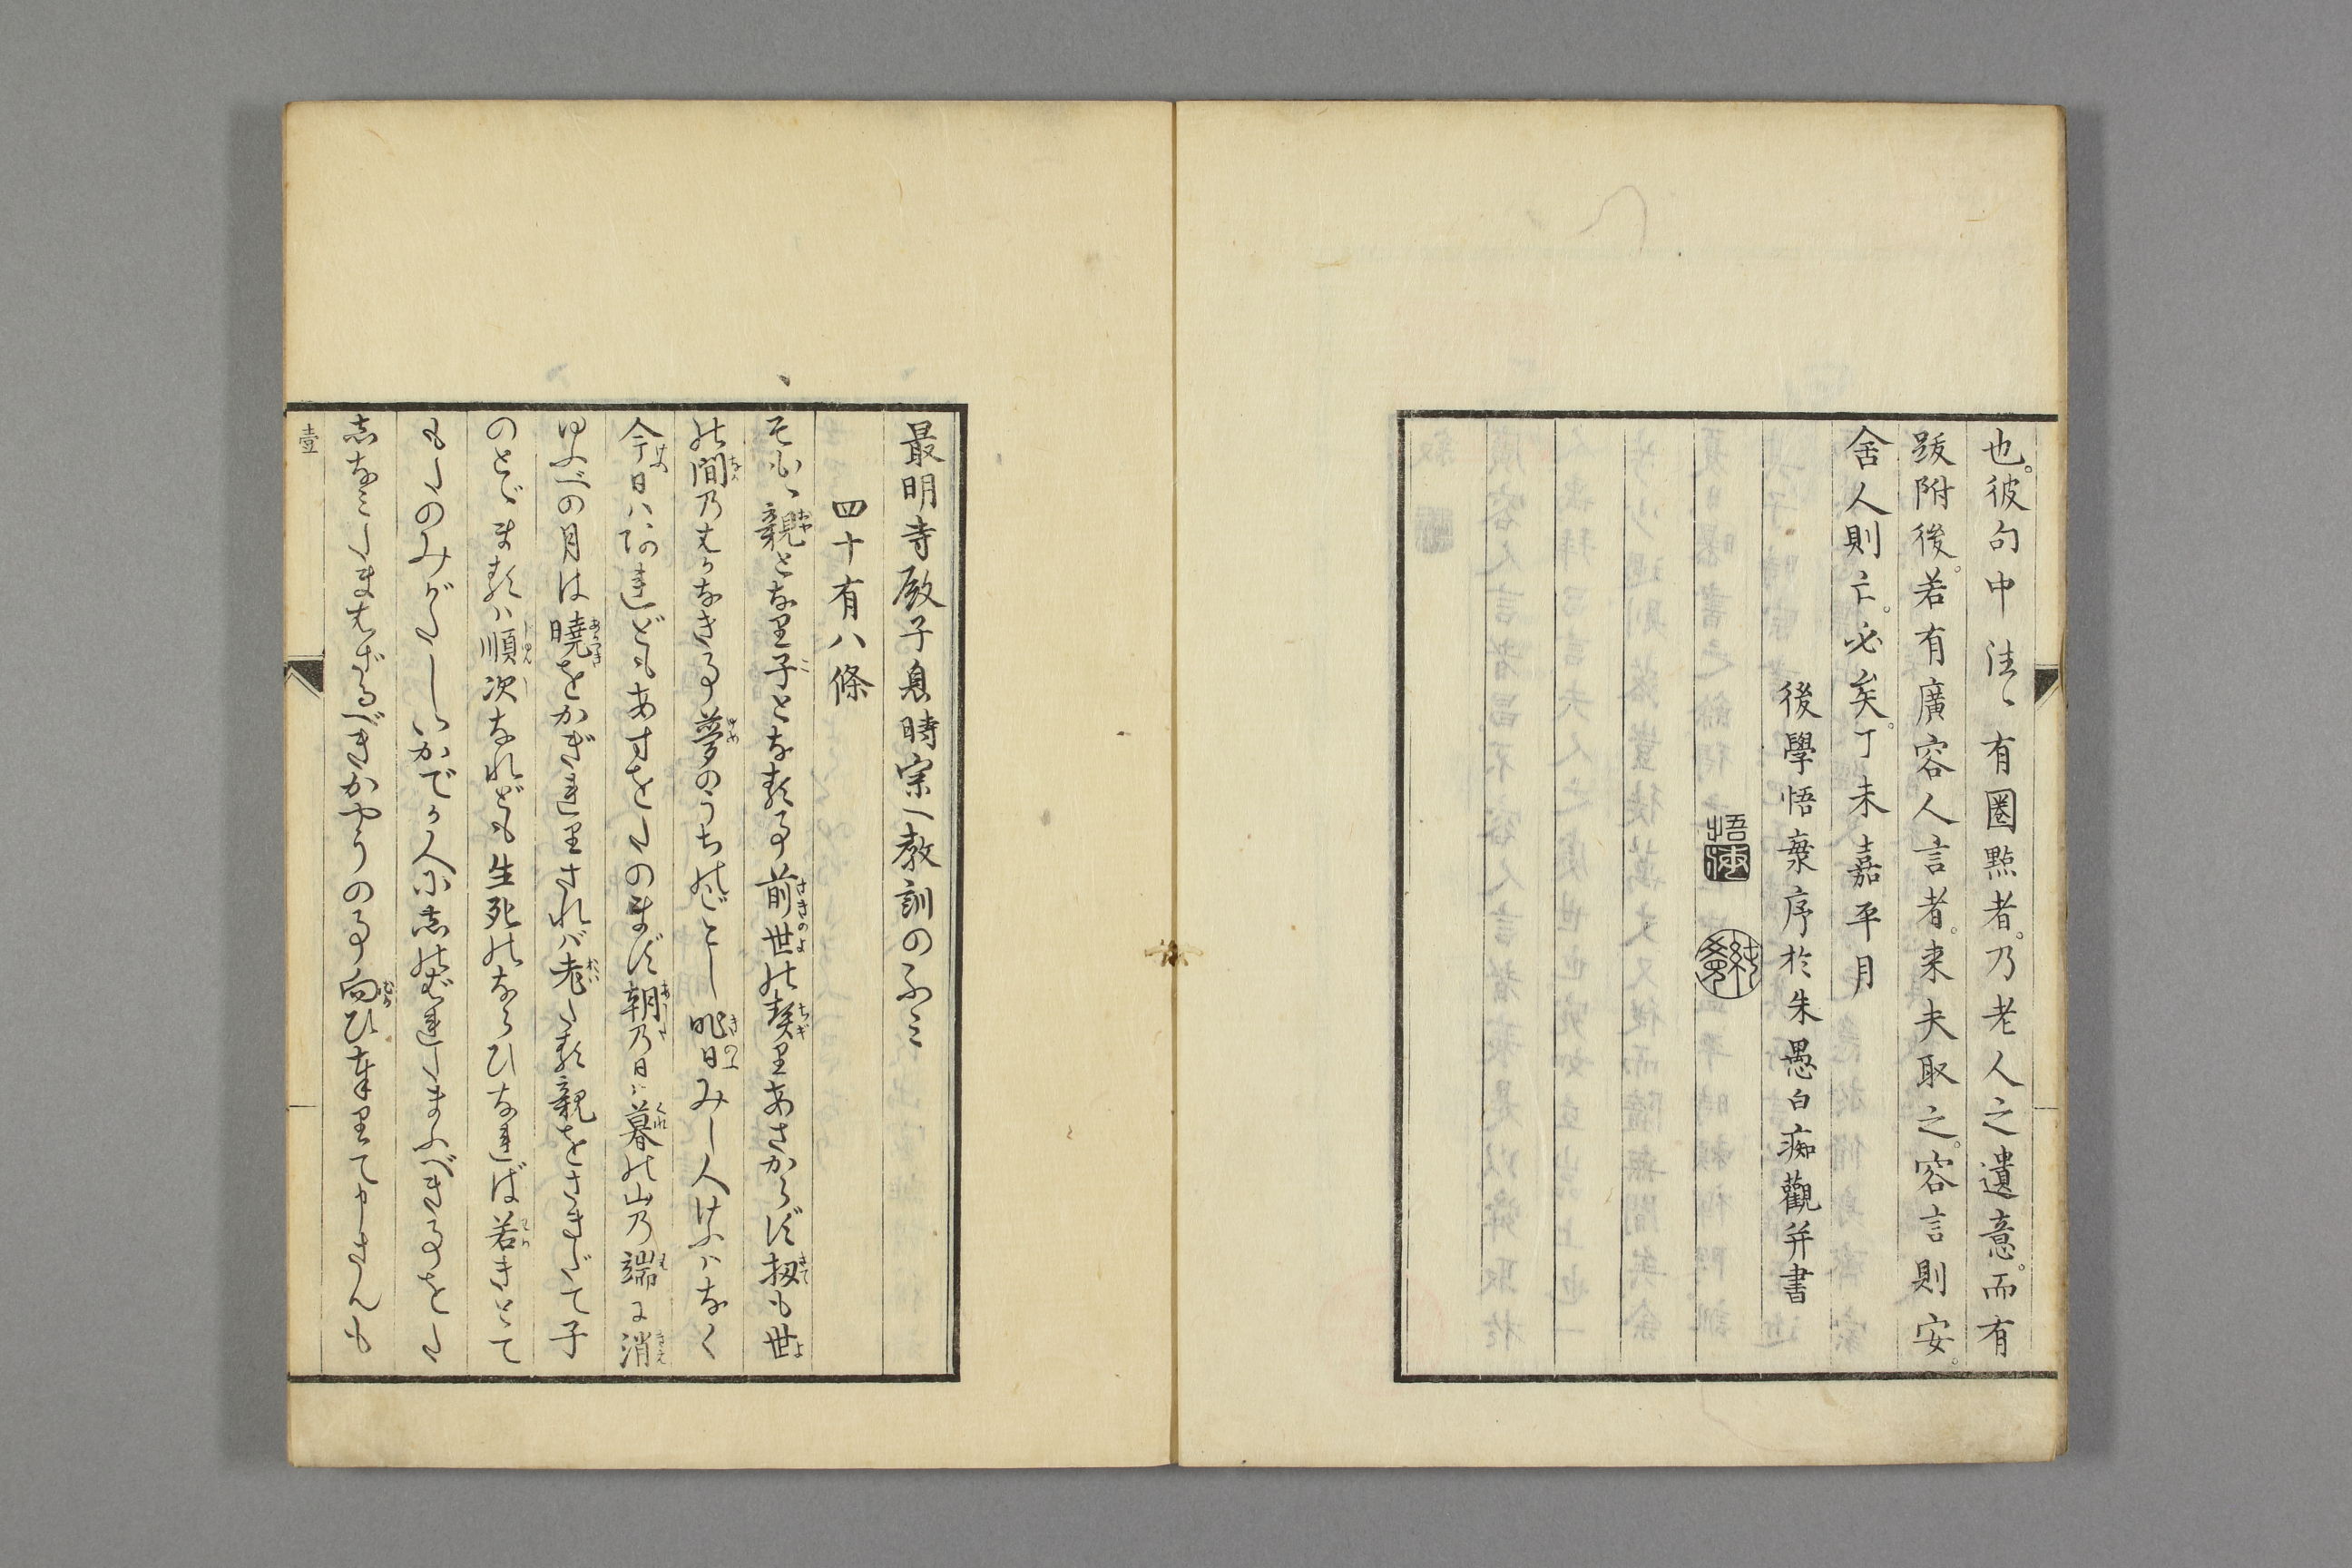 也。彼句中往〻有圏㸃者。乃老人之遺意。而有
跋附後。若有廣容人言者。来夫取之。容言則安。
舍人則亡。必矣。丁未嘉平月
後學悟棄序於朱愚白痴觀并書
最明寺殿子息時宗へ教訓のふミ
四十有八條
そも〳〵親となり子となる事前世の契りあさからず扨も世
の間のはかなき事夢のうちのごとし昨日みし人けふハなく
今日ハあれどもあすをしのまず朝の日ハ暮の山の端に消
ゆふべの月は曉をかぎれりされバ老たる親をさきだて子
のとゞまるハ順次なれども生死のならひなれば若きとて
もたのみがたしいかでか人に志のばれたまふべき事をた
志なミたまはざるべきかやうの事向ひ奉りて申さんも
壹